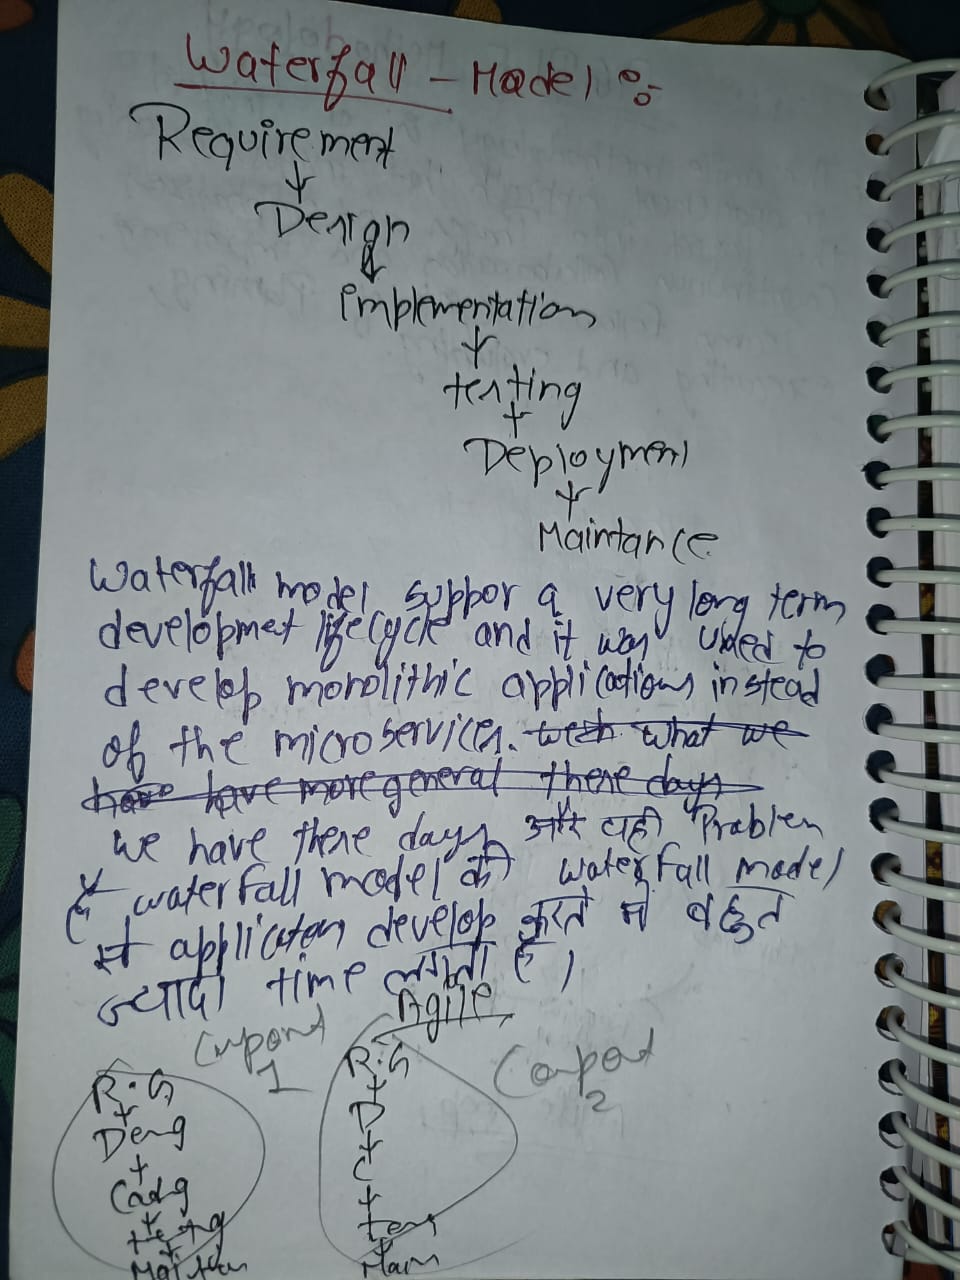 Waterfall - Model :-
Requirement
↓
Design
↓
implementation
↓
testing
↓
Deployment
↓
Maintance
Waterfall model suppor a very long term
developmet lifecycle and it was used to
develop monolithic applications instead
of the microservices. what we
have have more general these days
we have these days और यही Problem
है waterfall model की waterfall model
से application develop करने में बहुत
ज्यादा time लगता है।
Agile
Component 1
R.G
↓
Deng
↓
Codg
↓
testg
↓
Compont 2
R.G
↓
D
↓
C
↓
test
↓
Main